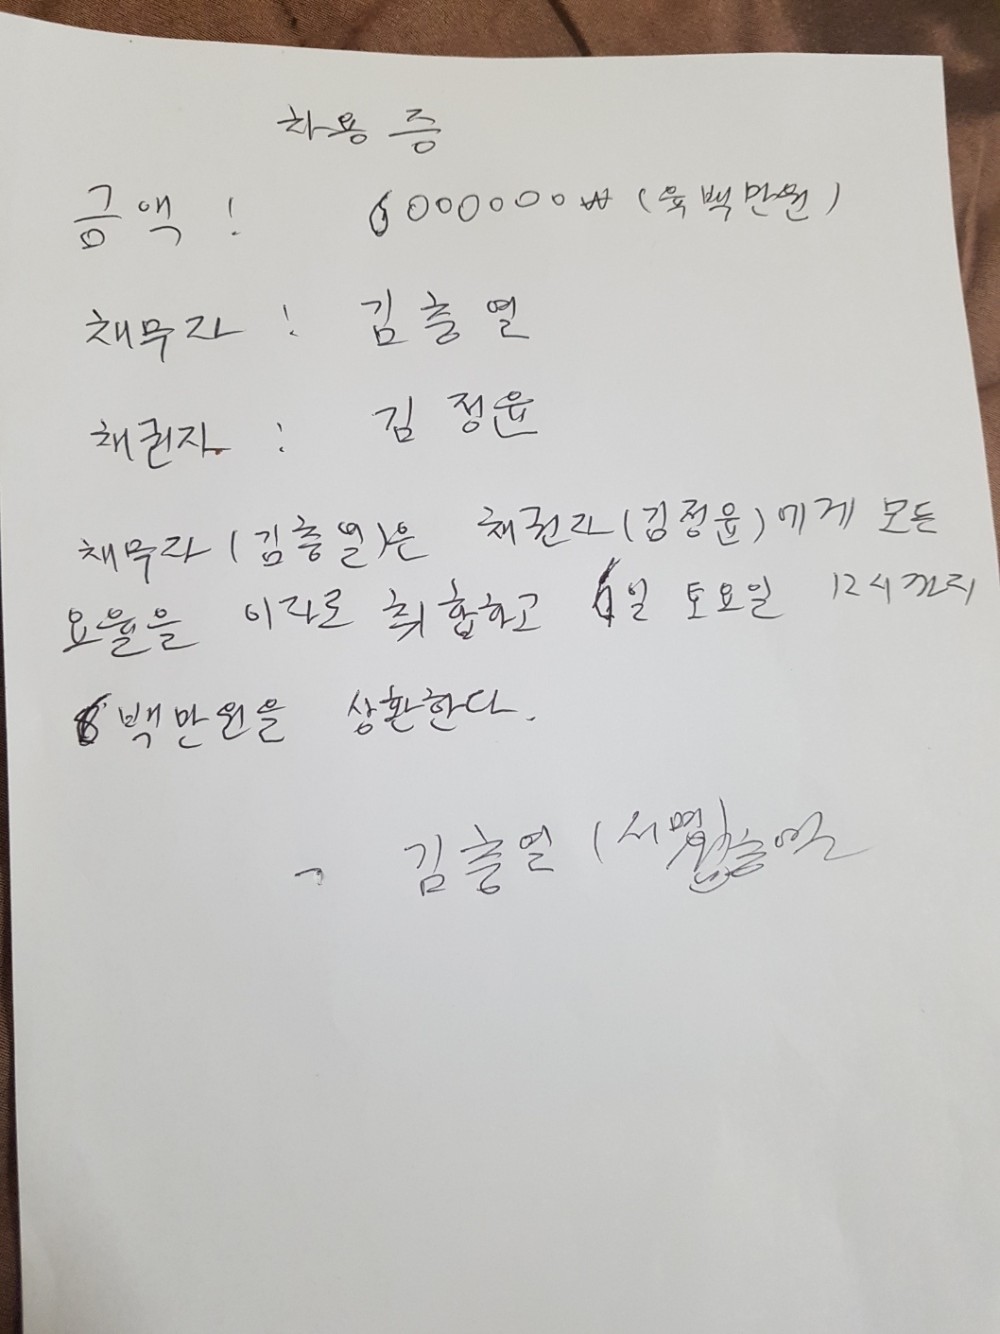 차용증
금액 : 6000000₩ (육백만원)
채무자 : 김충열
채권자 : 김정윤
채무자(김충열)은 채권자(김정윤)에게 모든
요율을 이자로 취합하고 6일 토요일 12시까지
6백만원을 상환한다.
김충열 (서명)